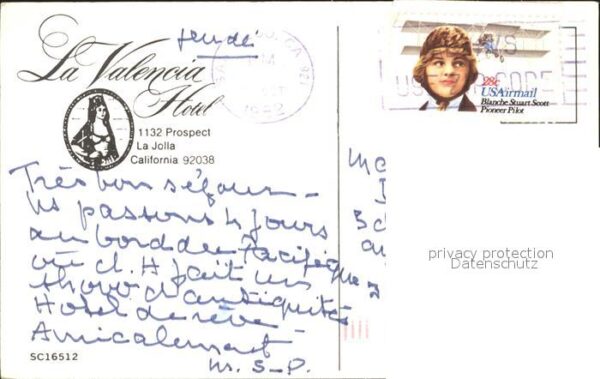 jeudi
La Valencia
Hotel
1132 Prospect
La Jolla
California 92038
1982
28c
USAirmail
Blanche Stuart Scott
Pioneer Pilot
Très bon séjour –
ns passons 4 jours
au bord du Pacifique
où cl. H fait un
show d'antiquités
Hotel de rêve –
Amicalement
M. S-P.
SC16512
privacy protection
Datenschutz